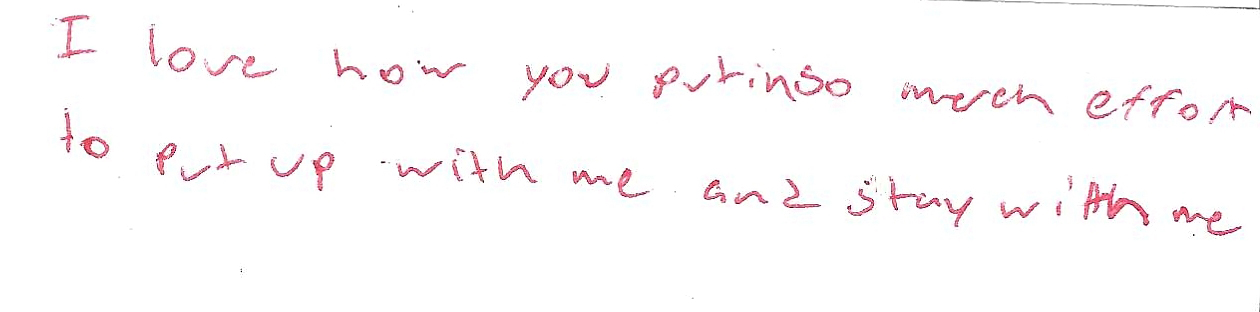 I love how you put in so much effort
to put up with me and stay with me